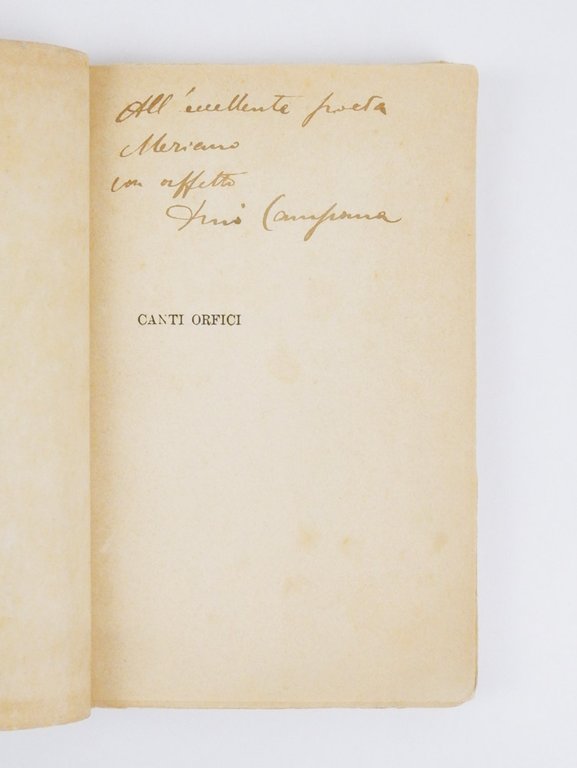 All'eccellente poeta
Meriano
con affetto
Dino Campana
CANTI ORFICI